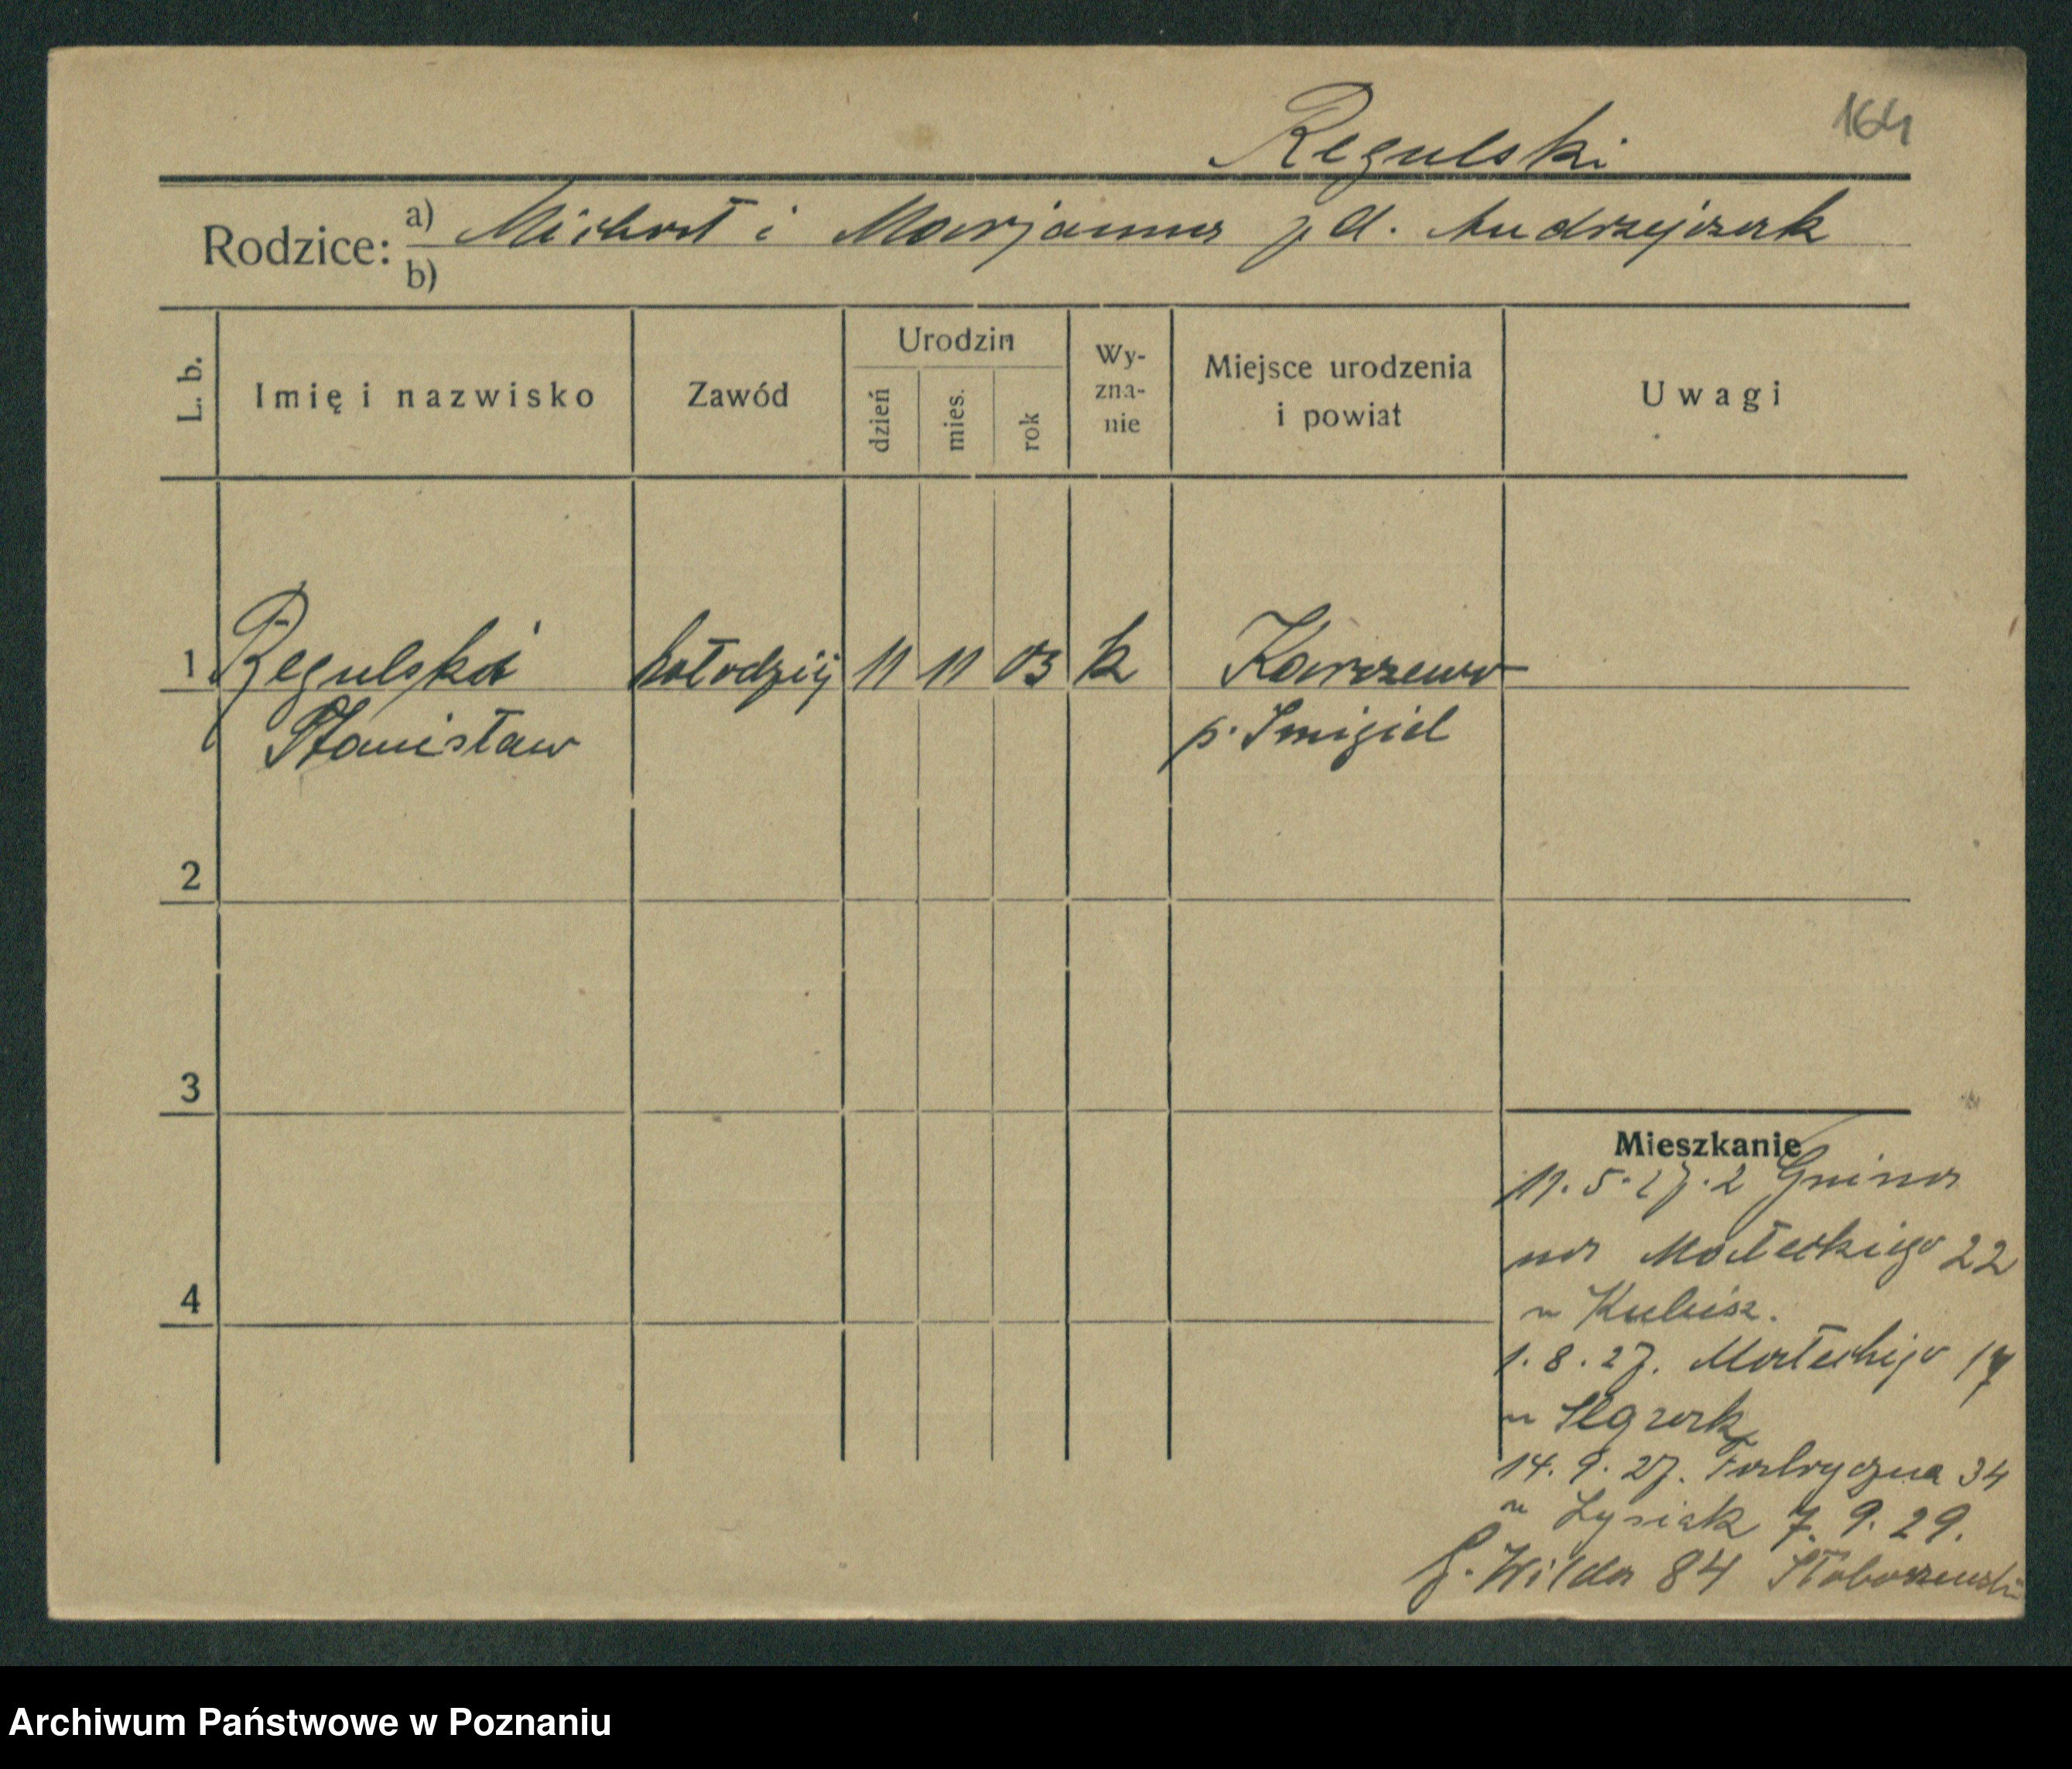 164
Regulski
Rodzice: a) Michał i Marjanna z d. Andrzejczak
b)
L. b.
Imię i nazwisko
Zawód
Urodzin
dzień
mies.
rok
Wy-
zna-
nie
Miejsce urodzenia
i powiat
Uwagi
1 Regulski kołodziej 11 11 03 k Karczewo
Stanisław p. Smigiel
2
3
4
Mieszkanie
11.5.27. z Gnina
na Małeckiego 22
u Kubisz.
1.8.27. Małeckiego 17
u
14.9.27. Fabryczna 34
u Łysiak 7.9.29.
G. Wilda 84
Archiwum Państwowe w Poznaniu